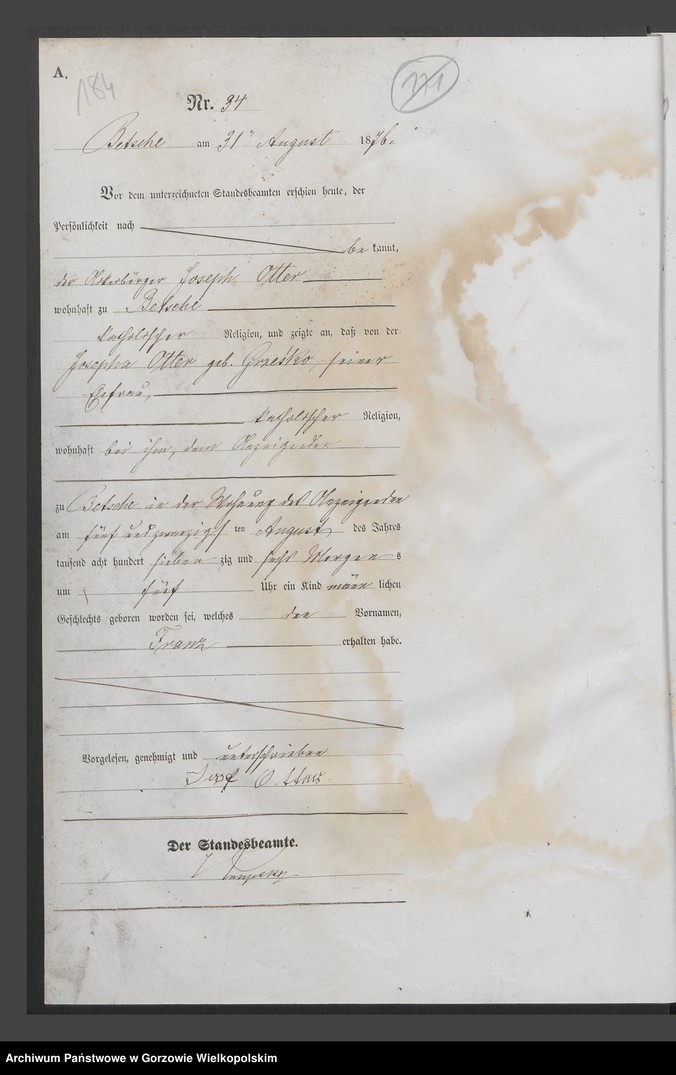 A.
184
171
Nr. 94
Betsche am 31ten August 1876.
Vor dem unterzeichneten Standesbeamten erschien heute, der
Persönlichkeit nach
be kannt,
der Ackerbürger Joseph Otter
wohnhaft zu Betsche
katholischer Religion, und zeigte an, daß von der
Josepha Otter geb. Grzesko, seiner
Ehefrau,
katholischer Religion,
wohnhaft bei ihm, dem Anzeigenden
zu Betsche in der Wohnung des Anzeigenden
am fünf und zwanzigsten August des Jahres
tausend acht hundert sieben zig und sechs Morgen s
um fünf Uhr ein Kind männ lichen
Geschlechts geboren worden sei, welches den Vornamen,
Franz erhalten habe.
Vorgelesen, genehmigt und unterschrieben
Otter
Der Standesbeamte.
Archiwum Państwowe w Gorzowie Wielkopolskim